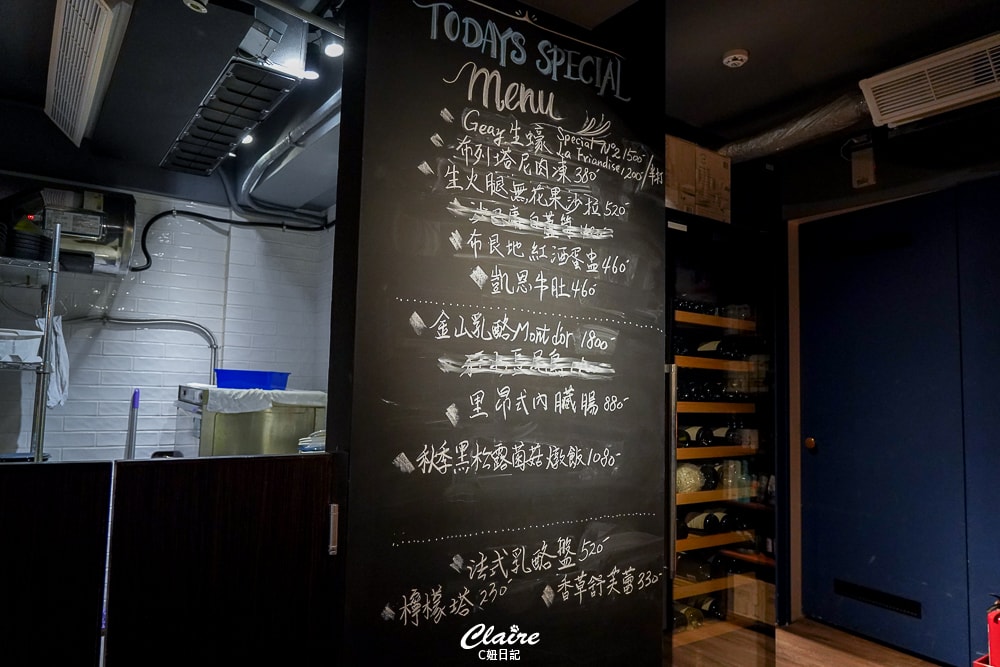 TODAYS SPECIAL
Menu
Geay生蠔 Special Nº2 1500-
La Friandise 1200-/半打
布列塔尼肉凍 380-
生火腿無花果沙拉 520-
布艮地紅酒蛋盅 460-
凱恩牛肚 460-
金山乳酪 Mont dor 1800-
里昂式內臟腸 880-
秋季黑松露菌菇燉飯 1080-
法式乳酪盤 520-
檸檬塔 230-
香草舒芙蕾 330-
Claire
C妞日記